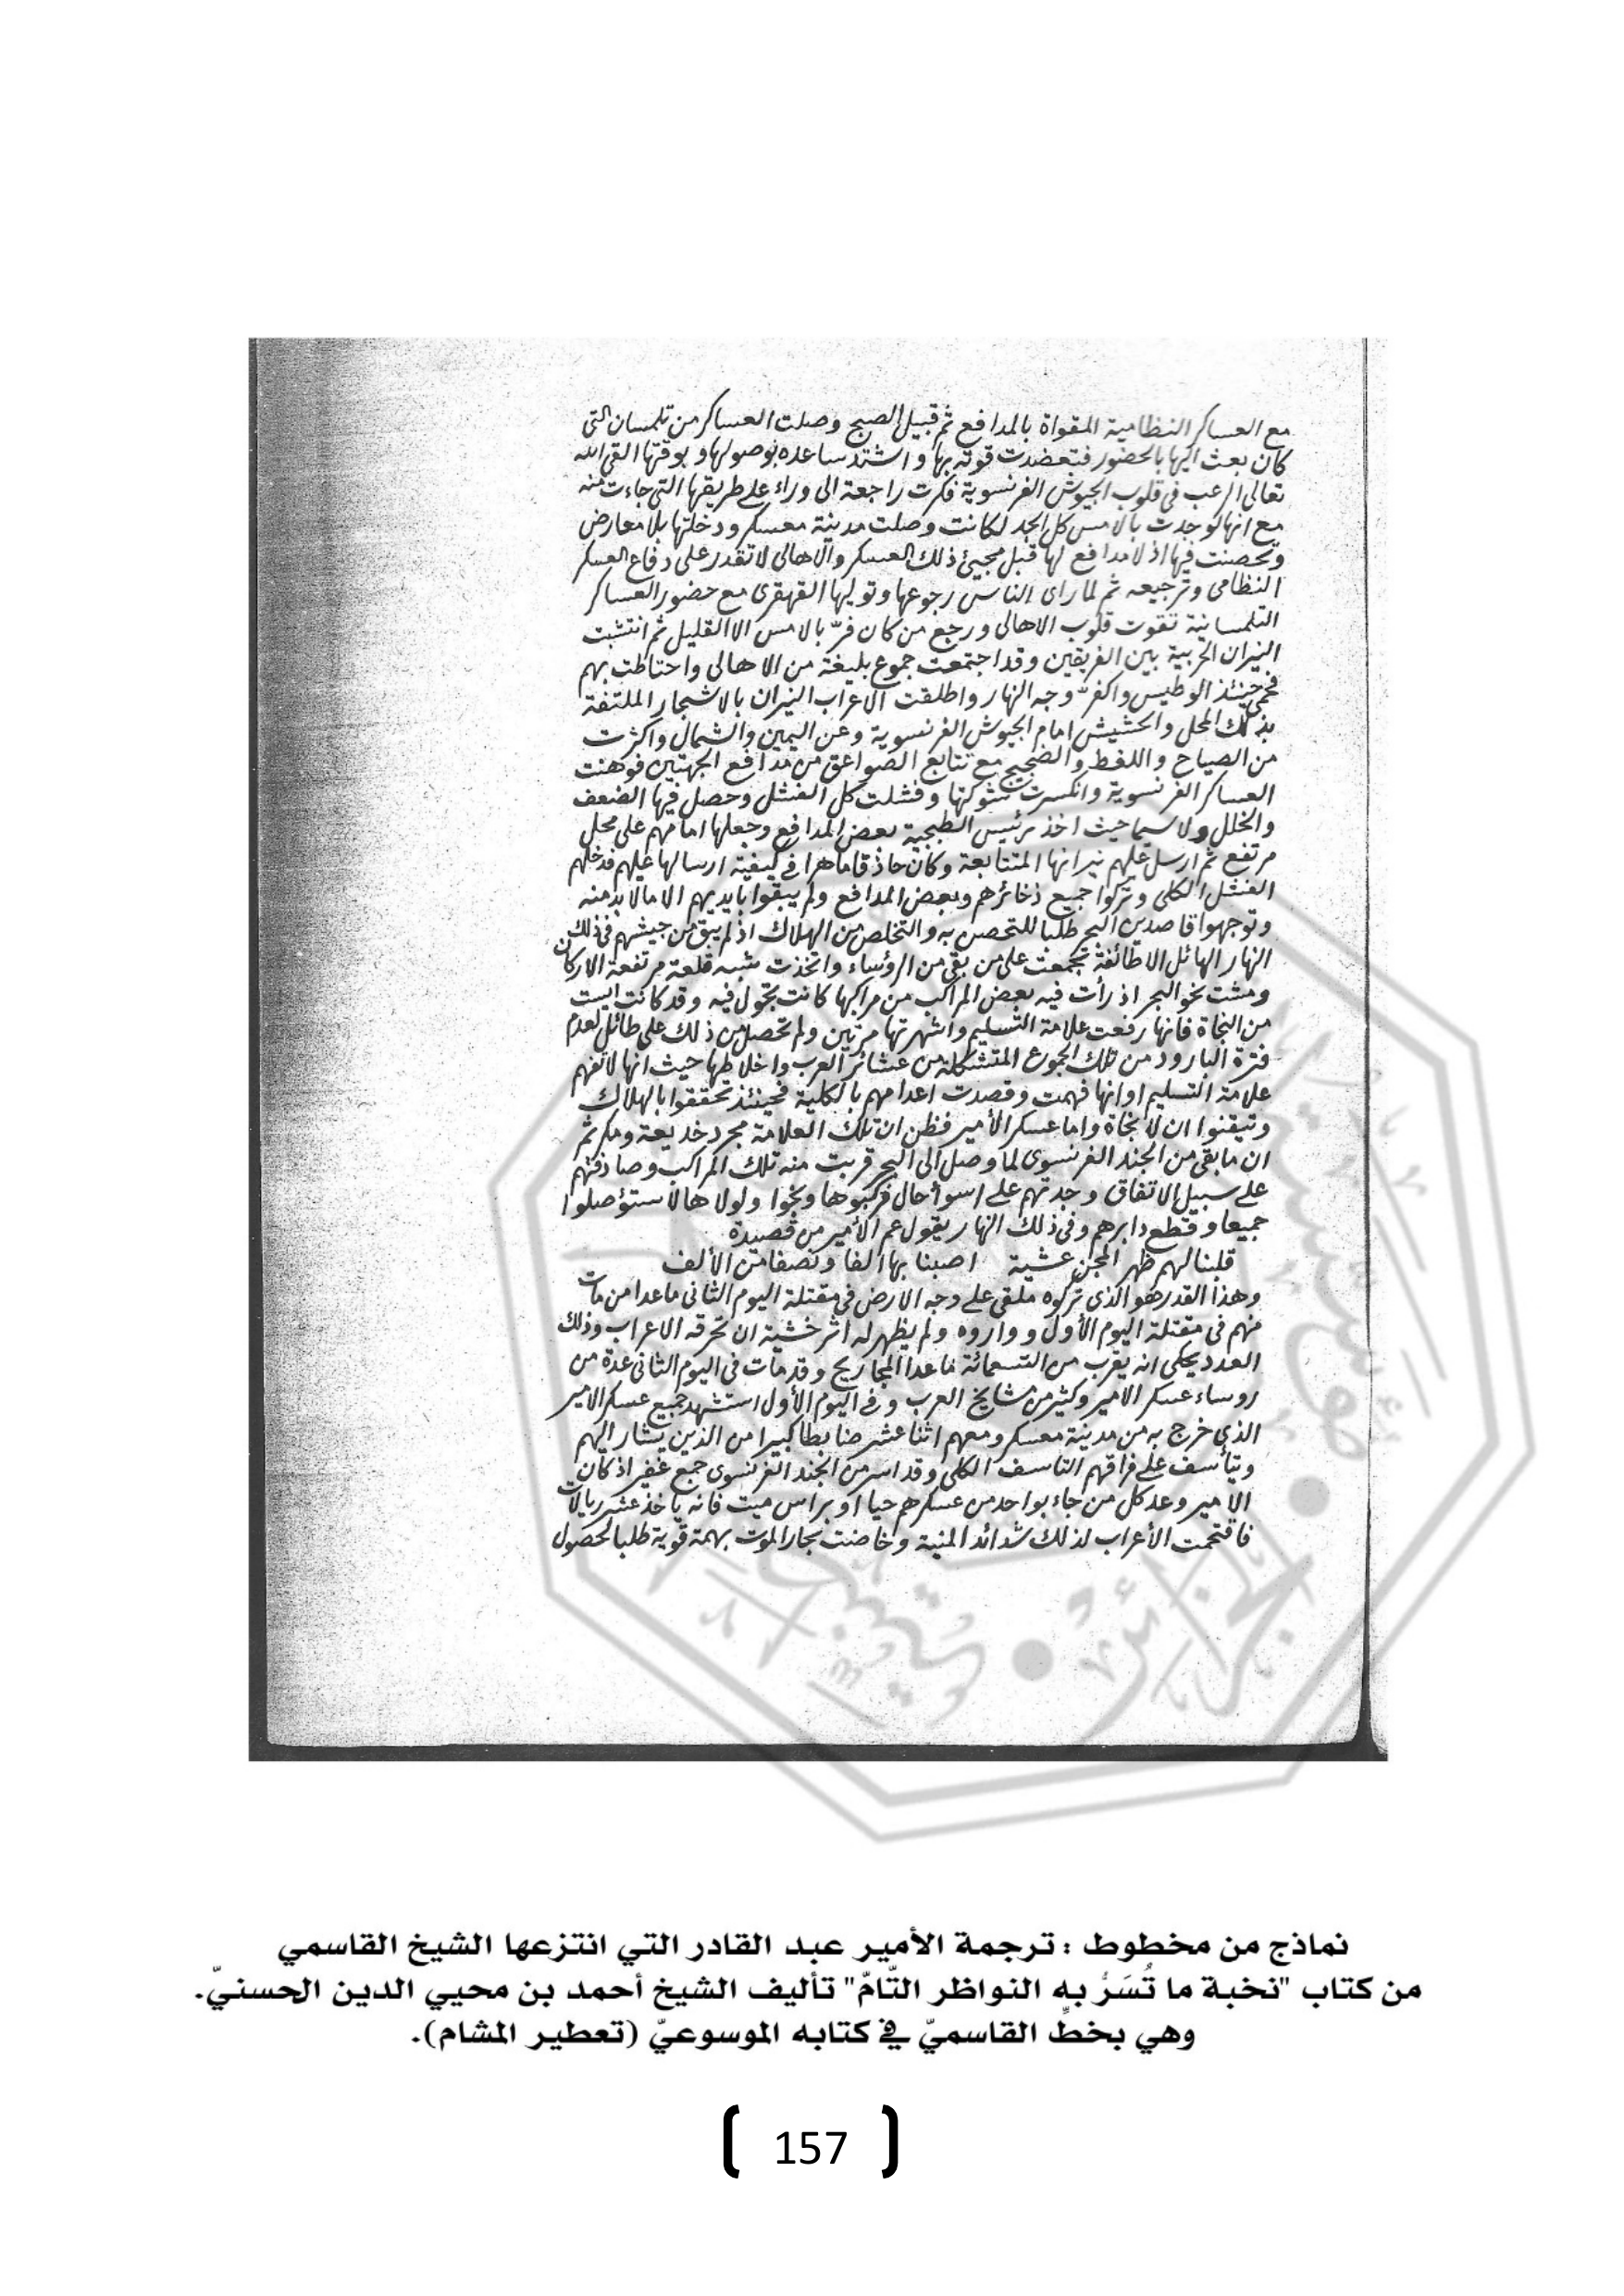 مع العساكر النظامية المقواة بالمدافع ثم قبيل الصبح وصلت العساكر من تلمسان التى
كان بعث اليها بالحضور فتعضدت قوته بها واشتد ساعده بوصولها وبوقتها القى الله
تعالى الرعب فى قلوب الجيوش الفرنسوية فكرت راجعة الى وراء على طريقها التى جاءت منه
مع انها لو جدت بالامس كل الجد لكانت وصلت مدينة معسكر ودخلتها بلا معارض
وتحصنت فيها اذ لا مدافع لها قبل مجيئ ذلك العسكر والاهالى لا تقدر على دفاع العسكر
النظامى وترجيعه ثم لما راى الناس رجوعها وتوليها القهقرى مع حضور العساكر
التلمسانية تقوت قلوب الاهالى ورجع من كان فرّ بالامس الا القليل ثم انتشبت
النيران الحربية بين الفريقين وقد اجتمعت جموع بليغة من الاهالى واحتاطت بهم
فحمى حينئذ الوطيس واكفرّ وجه النهار واطلقت الاعراب النيران بالاشجار الملتفة
بذلك المحل والحشيش امام الجيوش الفرنسوية وعن اليمين والشمال واكثرت
من الصياح واللغط والضجيج مع تتابع الصواعق من مدافع الجهتين فوهنت
العساكر الفرنسوية وانكسرت شوكتها وفشلت كل الفشل وحصل فيها الضعف
والخلل ولا سيما حيث اخذ رئيس الطبجية بعض المدافع وجعلها امامهم على محل
مرتفع ثم ارسل عليهم نيرانها المتتابعة وكان حاذقا ماهرا فى كيفية ارسالها عليهم فدخلهم
الفشل الكلى وتركوا جميع ذخائرهم وبعض المدافع ولم يبقوا بايديهم الا ما لابد منه
وتوجهوا قاصدين البحر طلبا للتحصن به والتخلص من الهلاك اذ لم يبق من جيشهم فى ذلك
النهار الهائل الا طائفة تجمعت على من بقى من الرؤساء واتخذت شبه قلعة مرتفعة الاركان
ومشت نحو البحر اذ رأت فيه بعض المراكب من مراكبها كانت تجول فيه وقد كانت ايست
من النجاة فانها رفعت علامة التسليم واشهرتها مرتين ولم تحصل من ذلك على طائل لعدم
فترة البارود من تلك الجموع المتشكلة من عشائر العرب واخلاطها حيث انها لا تفهم
علامة التسليم او انها فهمت وقصدت اعدامهم بالكلية فحينئذ تحققوا بالهلاك
وتيقنوا ان لا نجاة واما عسكر الأمير فظن ان تلك العلامة مجرد خديعة ومكر ثم
ان ما بقى من الجند الفرنسوى لما وصل الى البحر قربت منه تلك المراكب وصادفتهم
على سبيل الاتفاق وجدتهم على اسوأ حال فركبوها ونجوا ولولاها لاستؤصلوا
جميعا وقطع دابرهم وفى ذلك النهار يقول عم الأمير من قصيدة
قلبنا لهم ظهر المجن عشية اصبنا بها ألفا ونصفا من الألف
وهذا القدر هو الذى تركوه ملقى على وجه الارض فى مقتلة اليوم الثانى ماعدا من مات
منهم فى مقتلة اليوم الأول وواروه ولم يظهر له اثر خشية ان تحرقه الاعراب وذلك
العدد يحكى انه يقرب من التسعمائة ماعدا المجاريح وقد مات فى اليوم الثانى عدة من
روساء عسكر الامير وكثير من مشايخ العرب وفى اليوم الأول استشهد جميع عسكر الامير
الذى خرج به من مدينة معسكر ومعهم اثنا عشر ضابطا كبيرا من الذين يشار اليهم
ويتأسف على فراقهم التاسف الكلى وقد اسر من الجند الفرنسوى جمع غفير اذ كان
الامير وعد كل من جاء بواحد من عسكرهم حيا او براس ميت فانه ياخذ عشر ريالات
فاقتحمت الأعراب لذلك شدائد المنية وخاضت بحار الموت بهمة قوية طلبا لحصول
نماذج من مخطوط : ترجمة الأمير عبد القادر التي انتزعها الشيخ القاسمي
من كتاب "نخبة ما تُسَرُّ به النواظر التّامّ" تأليف الشيخ أحمد بن محيي الدين الحسنيّ.
وهي بخطِّ القاسميّ في كتابه الموسوعيّ (تعطير المشام).
157